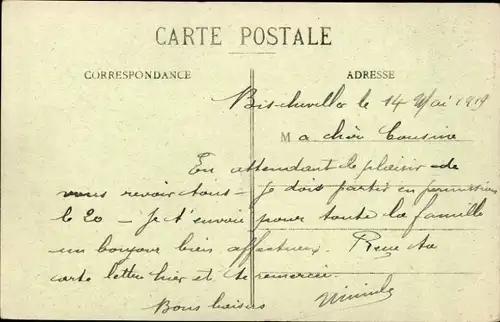 CARTE POSTALE
CORRESPONDANCE
ADRESSE
Bischwiller le 14 Mai 1919
Ma chère Cousine
En attendant le plaisir de
vous revoir tous - je dois partir en permission
le 20 - je t'envoie pour toute la famille
un bonjour bien affectueux. Reçu ta
carte lettre hier et te remercie.
Bons baisers